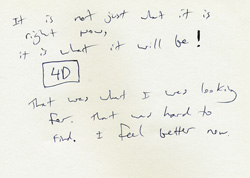 It is not just what it is
right now,
it is what it will be!
4D
That was what I was looking
for. That was hard to
find. I feel better now.